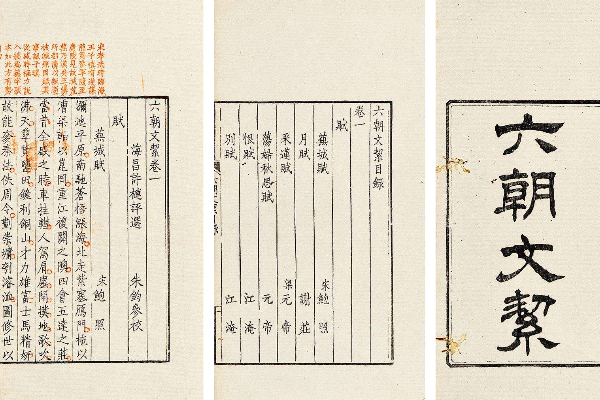 六朝文絜
六朝文絜目錄
卷一
賦
蕪城賦 宋鮑照
月賦 謝莊
采蓮賦 梁元帝
蕩婦秋思賦 元帝
恨賦 江淹
別賦 江淹
六朝文絜卷一
海昌許槤評選 朱鈞參校
賦
蕪城賦 宋鮑照
瀰迆平原南馳蒼梧漲海北走紫塞鴈門柂以
漕渠軸以崑岡重江複關之隩四會五達之莊
當昔全盛之時車挂轊人駕肩廛閈撲地歌吹
沸天孳貨鹽田鏟利銅山才力雄富士馬精妍
故能奓秦法佚周令劃崇墉刳濬洫圖修世以